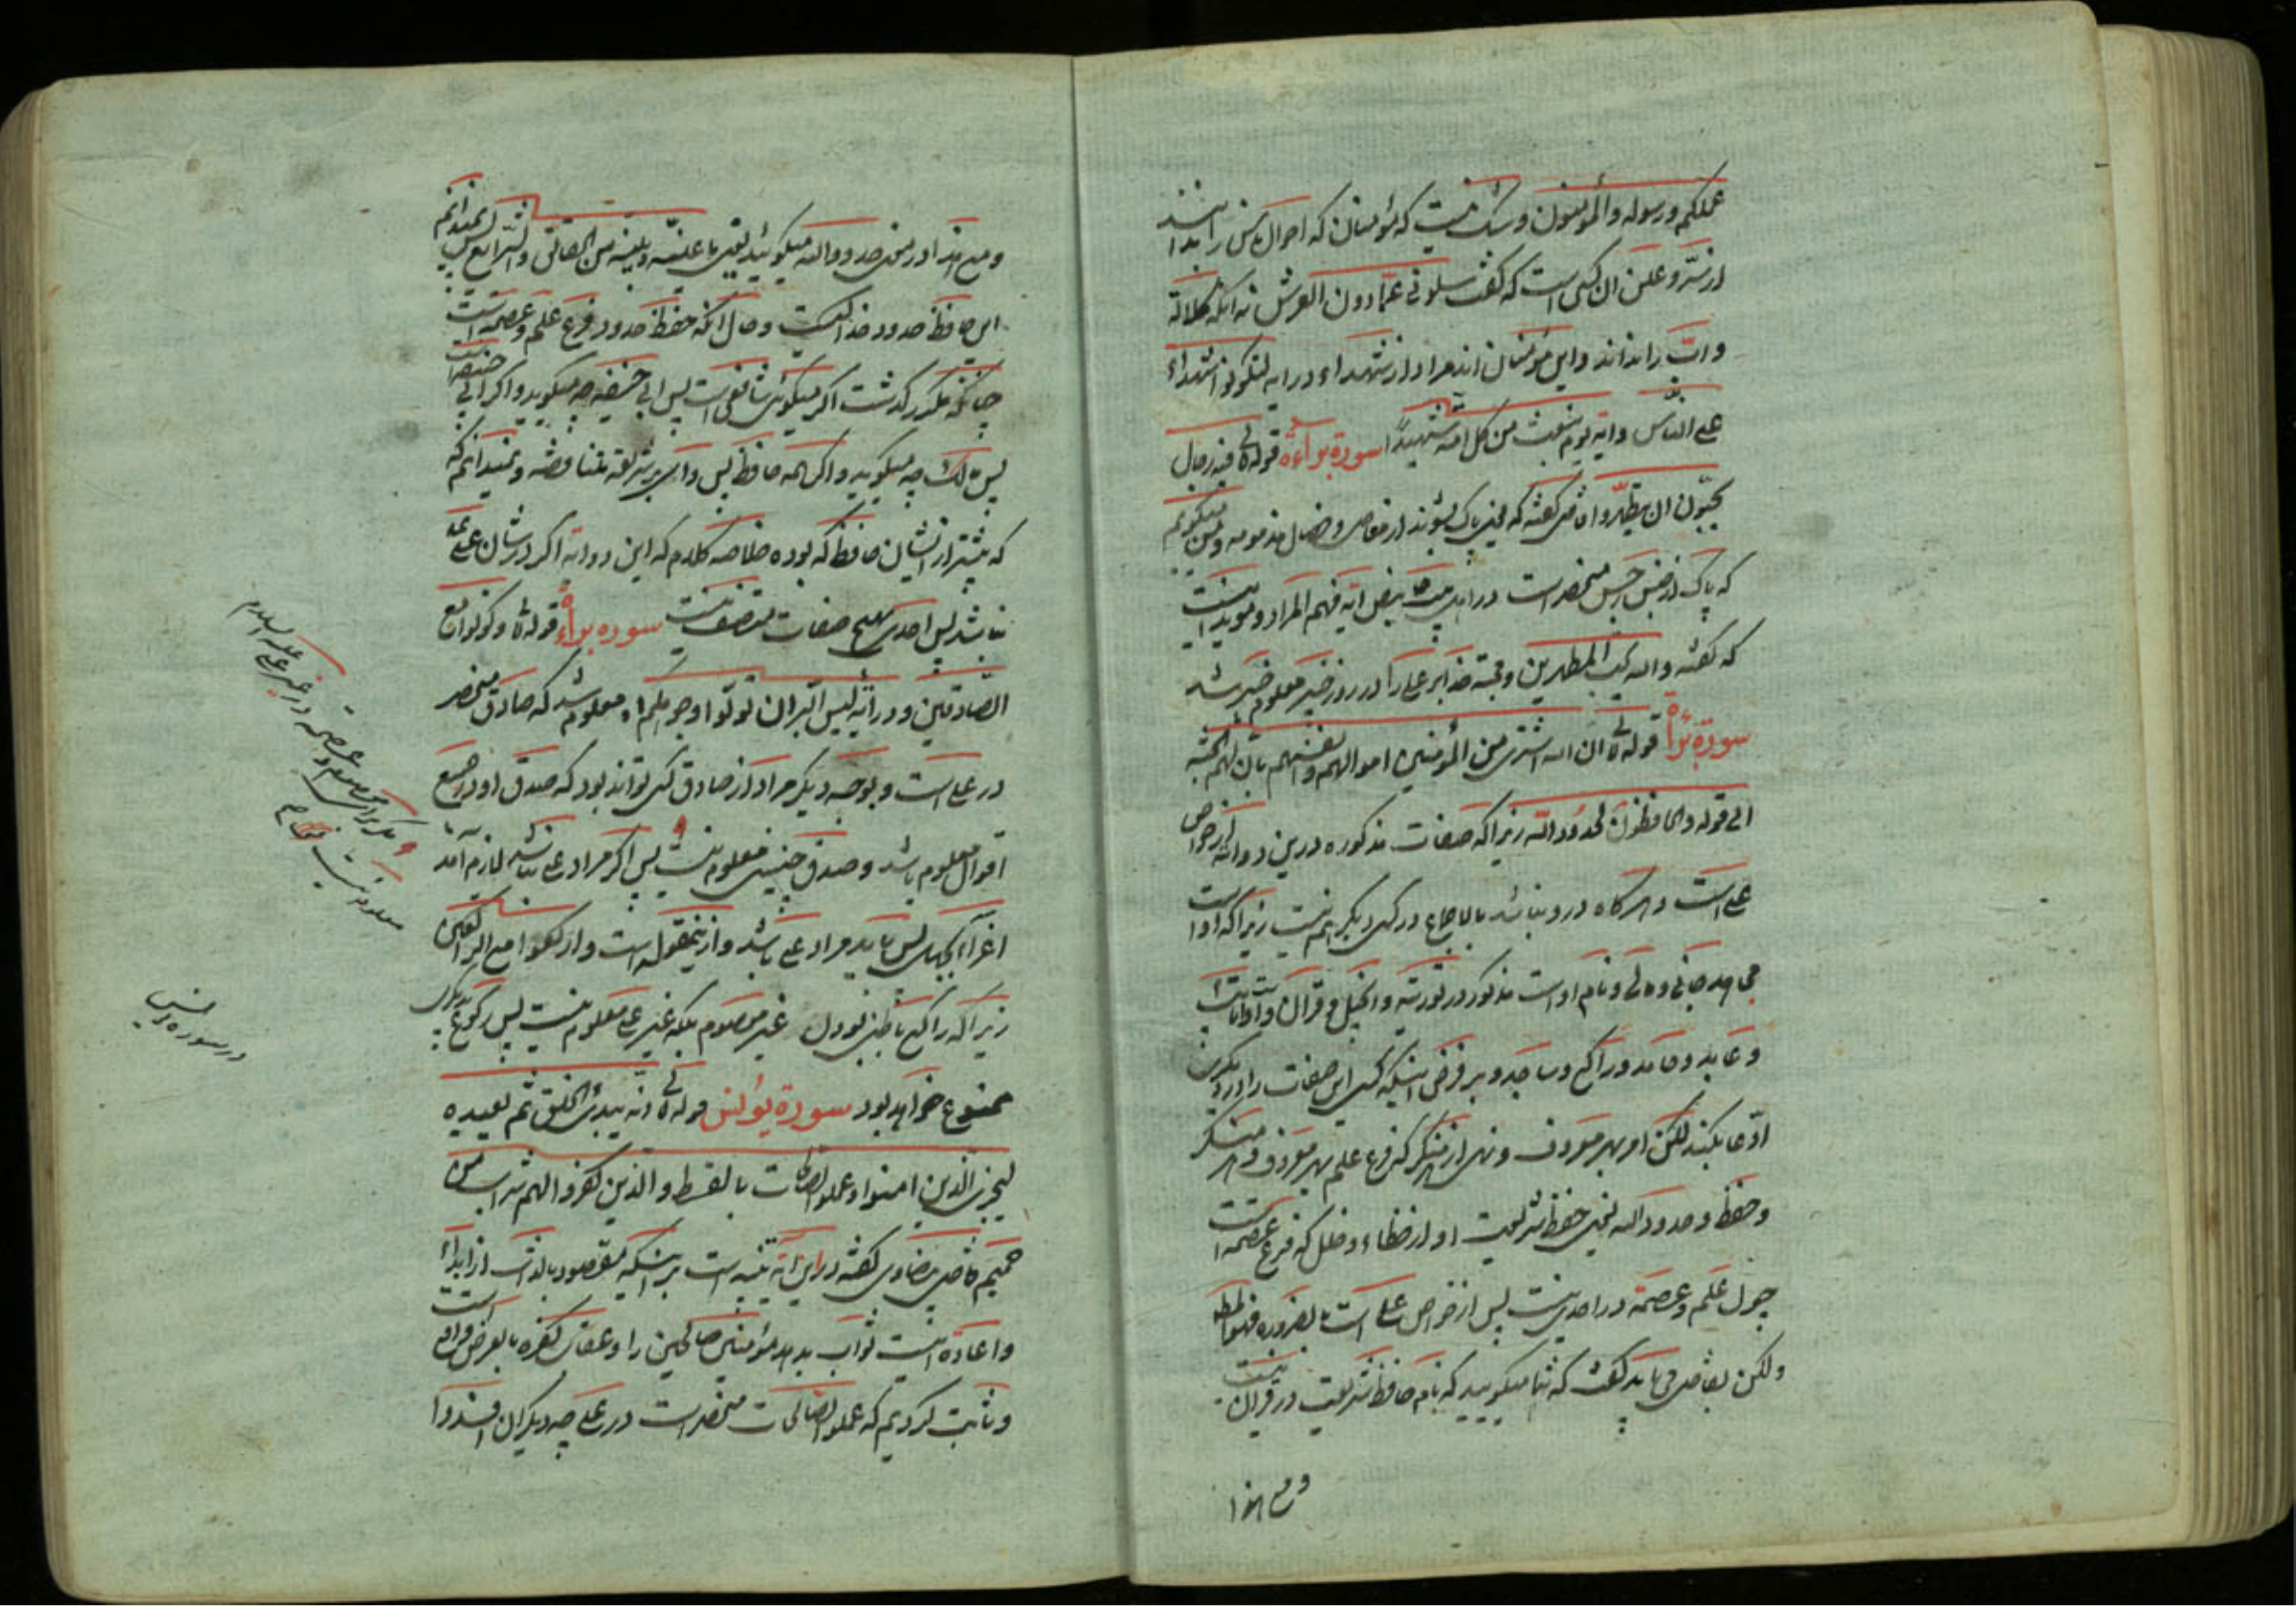 عملکم ورسوله والمؤمنون وشک نیست که مؤمنان که احوال ناس را بدانند
از سرّ وعلن ان کس است که گفت سلونی عمّا دون العرش نه انکه کلالة
وابّ را نداند واین مؤمنان اند مراد از شهداء در ایه لتکونوا شهداء
علی الناس وایه یوم نبعث من کل امة شهیداً سورة براءة قوله تعالی فیه رجال
یحبّون ان یتطهّروا قاضی گفته که یعنی پاک بشوند از معاصی وخصال مذمومه ومن میگویم
که پاک از جنس رجس منحصر است در اهل بیت بنص ایه فهم المراد ومؤید اینست
که گفته والله یحب المطهرین ومحبة خدا بر علی را در روز خیبر معلوم خیبر شد
سورة براءة قوله تعالی ان الله اشتری من المؤمنین اموالهم وانفسهم بان لهم الجنة
الی قوله والحافظون لحدود الله زیرا که صفات مذکوره درین دو ایه از خواص
علی است وهرکاه درو نباشد بالاجماع در کسی دیکر هم نیست زیرا که او است
مجاهد جانی ومالی ونام او است مذکور در توریة وانجیل و قران واو است تائب
وعابد وحامد وراکع وساجد وبر فرض اینکه کسی این صفات را در دیکری
ادّعا بکند لکن امر بمعروف ونهی از منکر که فرع علم بمعروف ومنکر
وحفظ وحدود الله یعنی حفظ شریعت او از خطاء وخلل که فرع عصمة است
چون علم وعصمة در احدی نیست پس از خواص علی است بالضروره فهو المط
ولکن بقاضی می باید گفت که شما میکویید که نام حافظ شریعت در قران نیست
ومع هذا
ومع هذا در معنی حدود الله میکوئید یعنی ما عینه وبینه من الحقائق والشرایع پس نمیدانم
این حافظ حدود خدا کیست وحال انکه حفظ حدود فرع علم وعصمة است
چنانکه مکرر گذشت اکر میکوئی شافعی است پس ابی حنیفه چه میکوید واکر ابی حنیفه است
پس مالک چه میکوید واکر همه حافظ پس وای بر شریعة متناقضه ونمیدانم که
که پیشتر از ایشان حافظ که بوده خلاصه کلام که این دو ایه اکر در شان علی ع
نباشد پس احدی بهیچ صفات متصف نیست سوره براءة قوله تعالی وکونوا مع
الصّادقین ودر ایه لیس البر ان تولّوا وجوهکم اه معلوم شد که صادق منحصر
در علی است وبوجه دیکر مراد از صادق کسی تواند بود که صدق او در جمیع
اقوال معلوم باشد وصدق چنین معلوم نیست پس اکر مراد علی نباشد لازم آمد
اغراء بجهل پس باید مراد علی باشد وازینمقوله است وارکعوا مع الراکعین
زیرا که راکع باطنی بودن غیر معصوم بلکه غیر علی معلوم نیست پس رکوع بدیکری
ممنوع خواهد بود سورة یونس قوله تعالی انه یبدئ الخلق ثم یعیده
لیجزی الذین امنوا وعملوا الصالحات بالقسط والذین کفروا لهم شراب من
حمیم قاضی بیضاوی گفته در این ایه تنبیه است بر اینکه مقصود بالذات از ابداء
واعاده اینست ثواب بدهد مؤمنین صالحین را وعقاب کفره بالعرض مراد است
وثابت کردیم که عملوا الصالحات منحصر است در علی چه دیکران افسدوا
علیه السلام
معلوم نیست
در سوره یونس